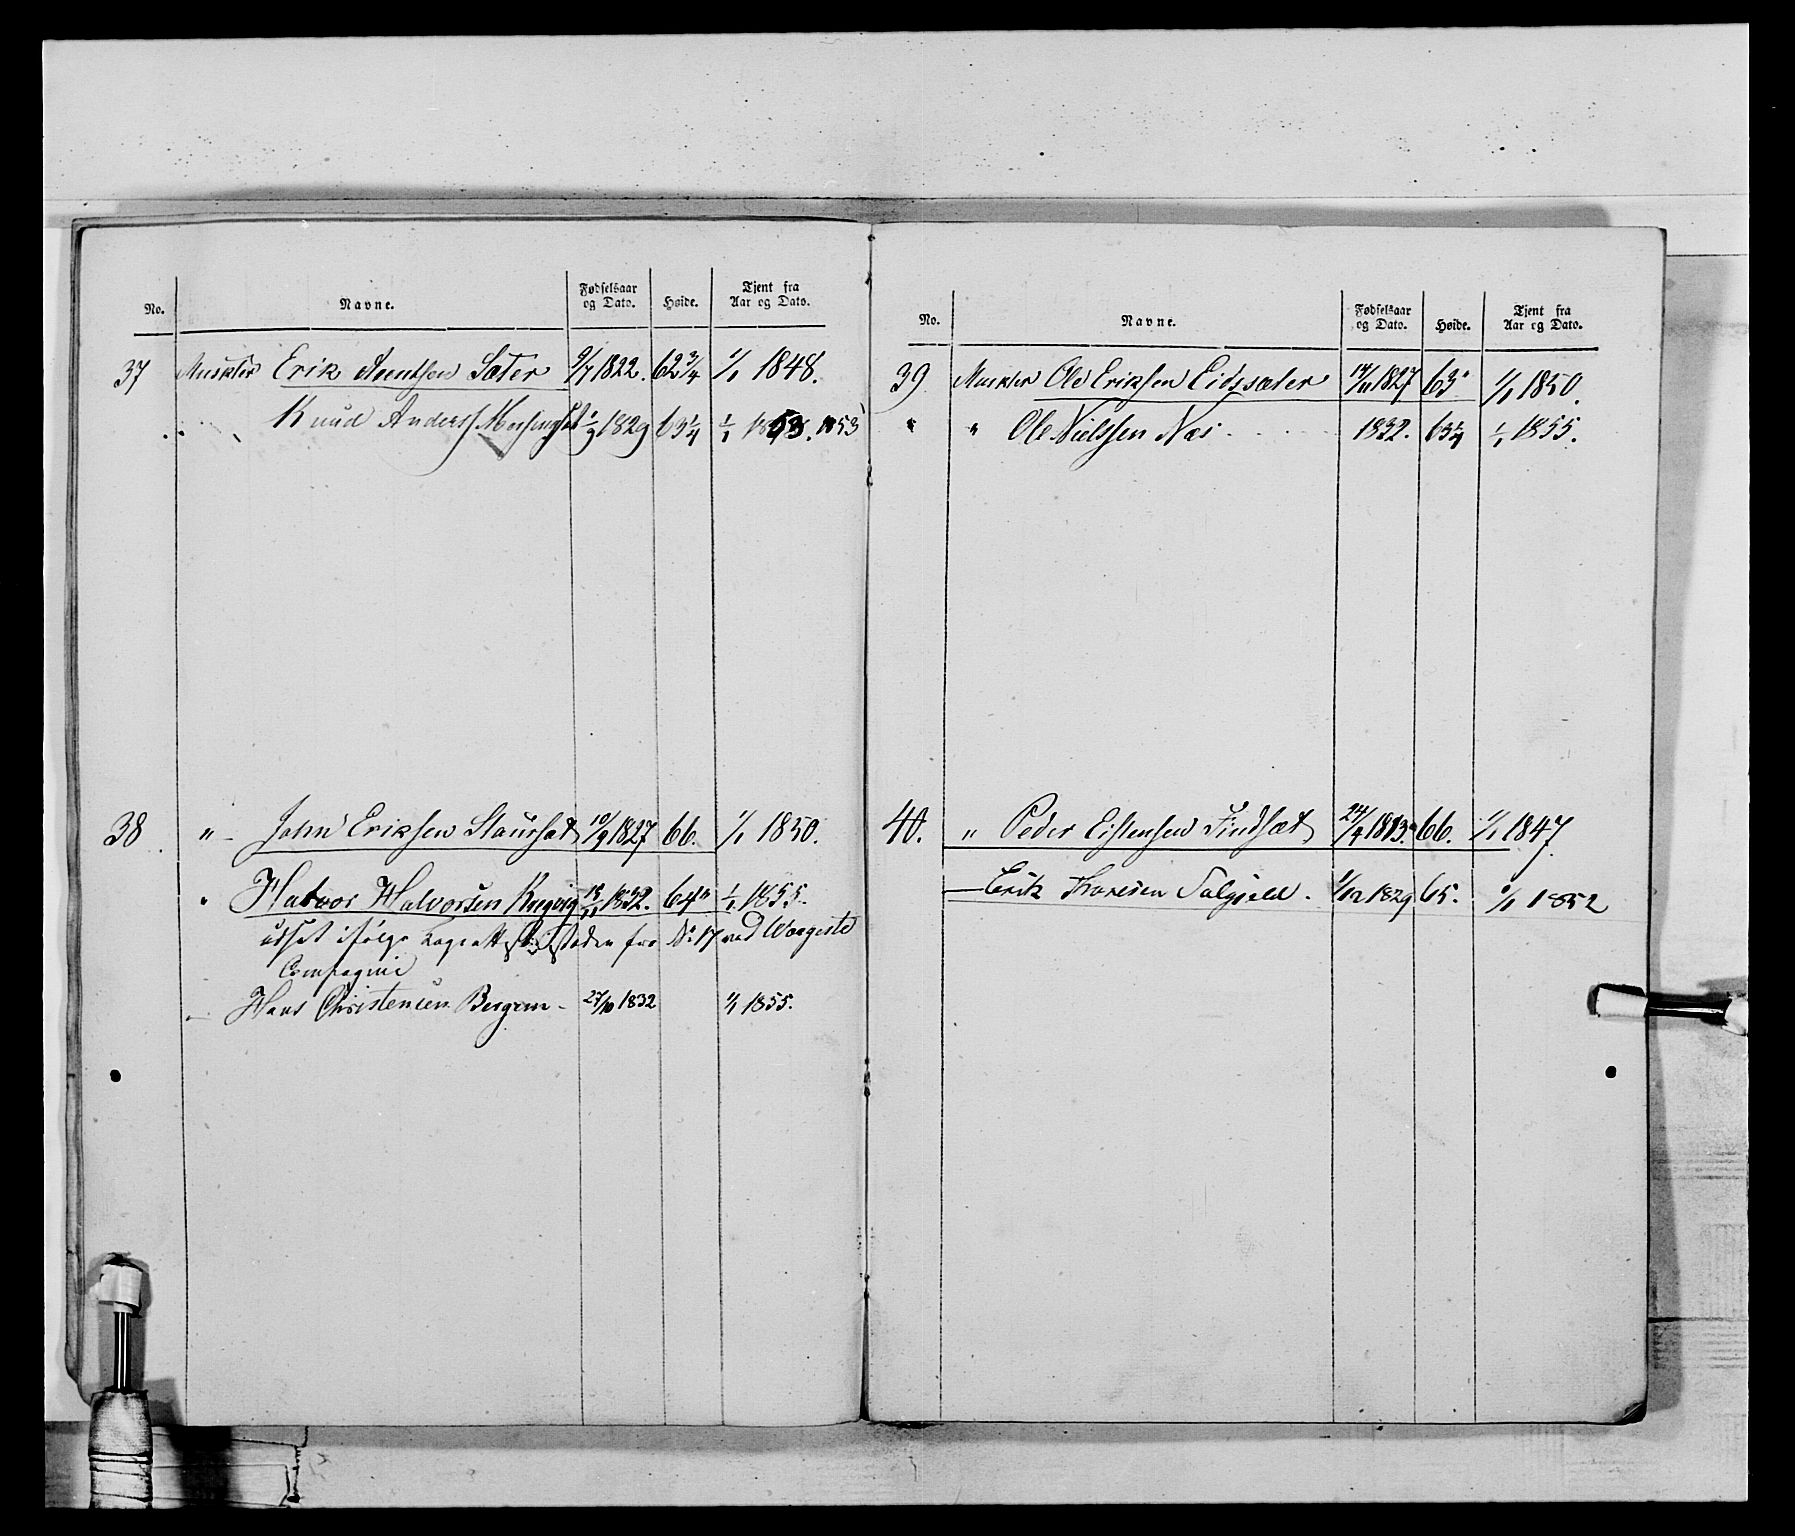 No. Navne. Fødselsaar og Dato. Høide. Tjent fra Aar og Dato.
37 Musktr Erik Arentsen Sæter 9/7 1822. 62 3/4 1/1 1848.
Knud Anderss. 1/9 1829 63 1/4 1/1 1853. 1853
38 " - John Eriksen Staursæt 10/9 1827 66. 1/1 1850.
" Halvor Halvorsen Ringvig 1832. 64" 1/1 1855.
udsat ifølge No 17 ved
Compagnie
Hans Christensen Bergem - 27/10 1832 1/1 1855.
No. Navne. Fødselsaar og Dato. Høide. Tjent fra Aar og Dato.
39 Musktr Ole Eriksen Eidssæter 14/11 1827 63" 1/1 1850.
" " Ole Nielssen Næs 1832. 63 1/4 1/1 1855.
40. " Peder Eistensen Findsæt 24/4 1813. 66. 1/1 1847.
Erik Thoresen Talgjeld. 1/12 1829 65. 1/1 1852